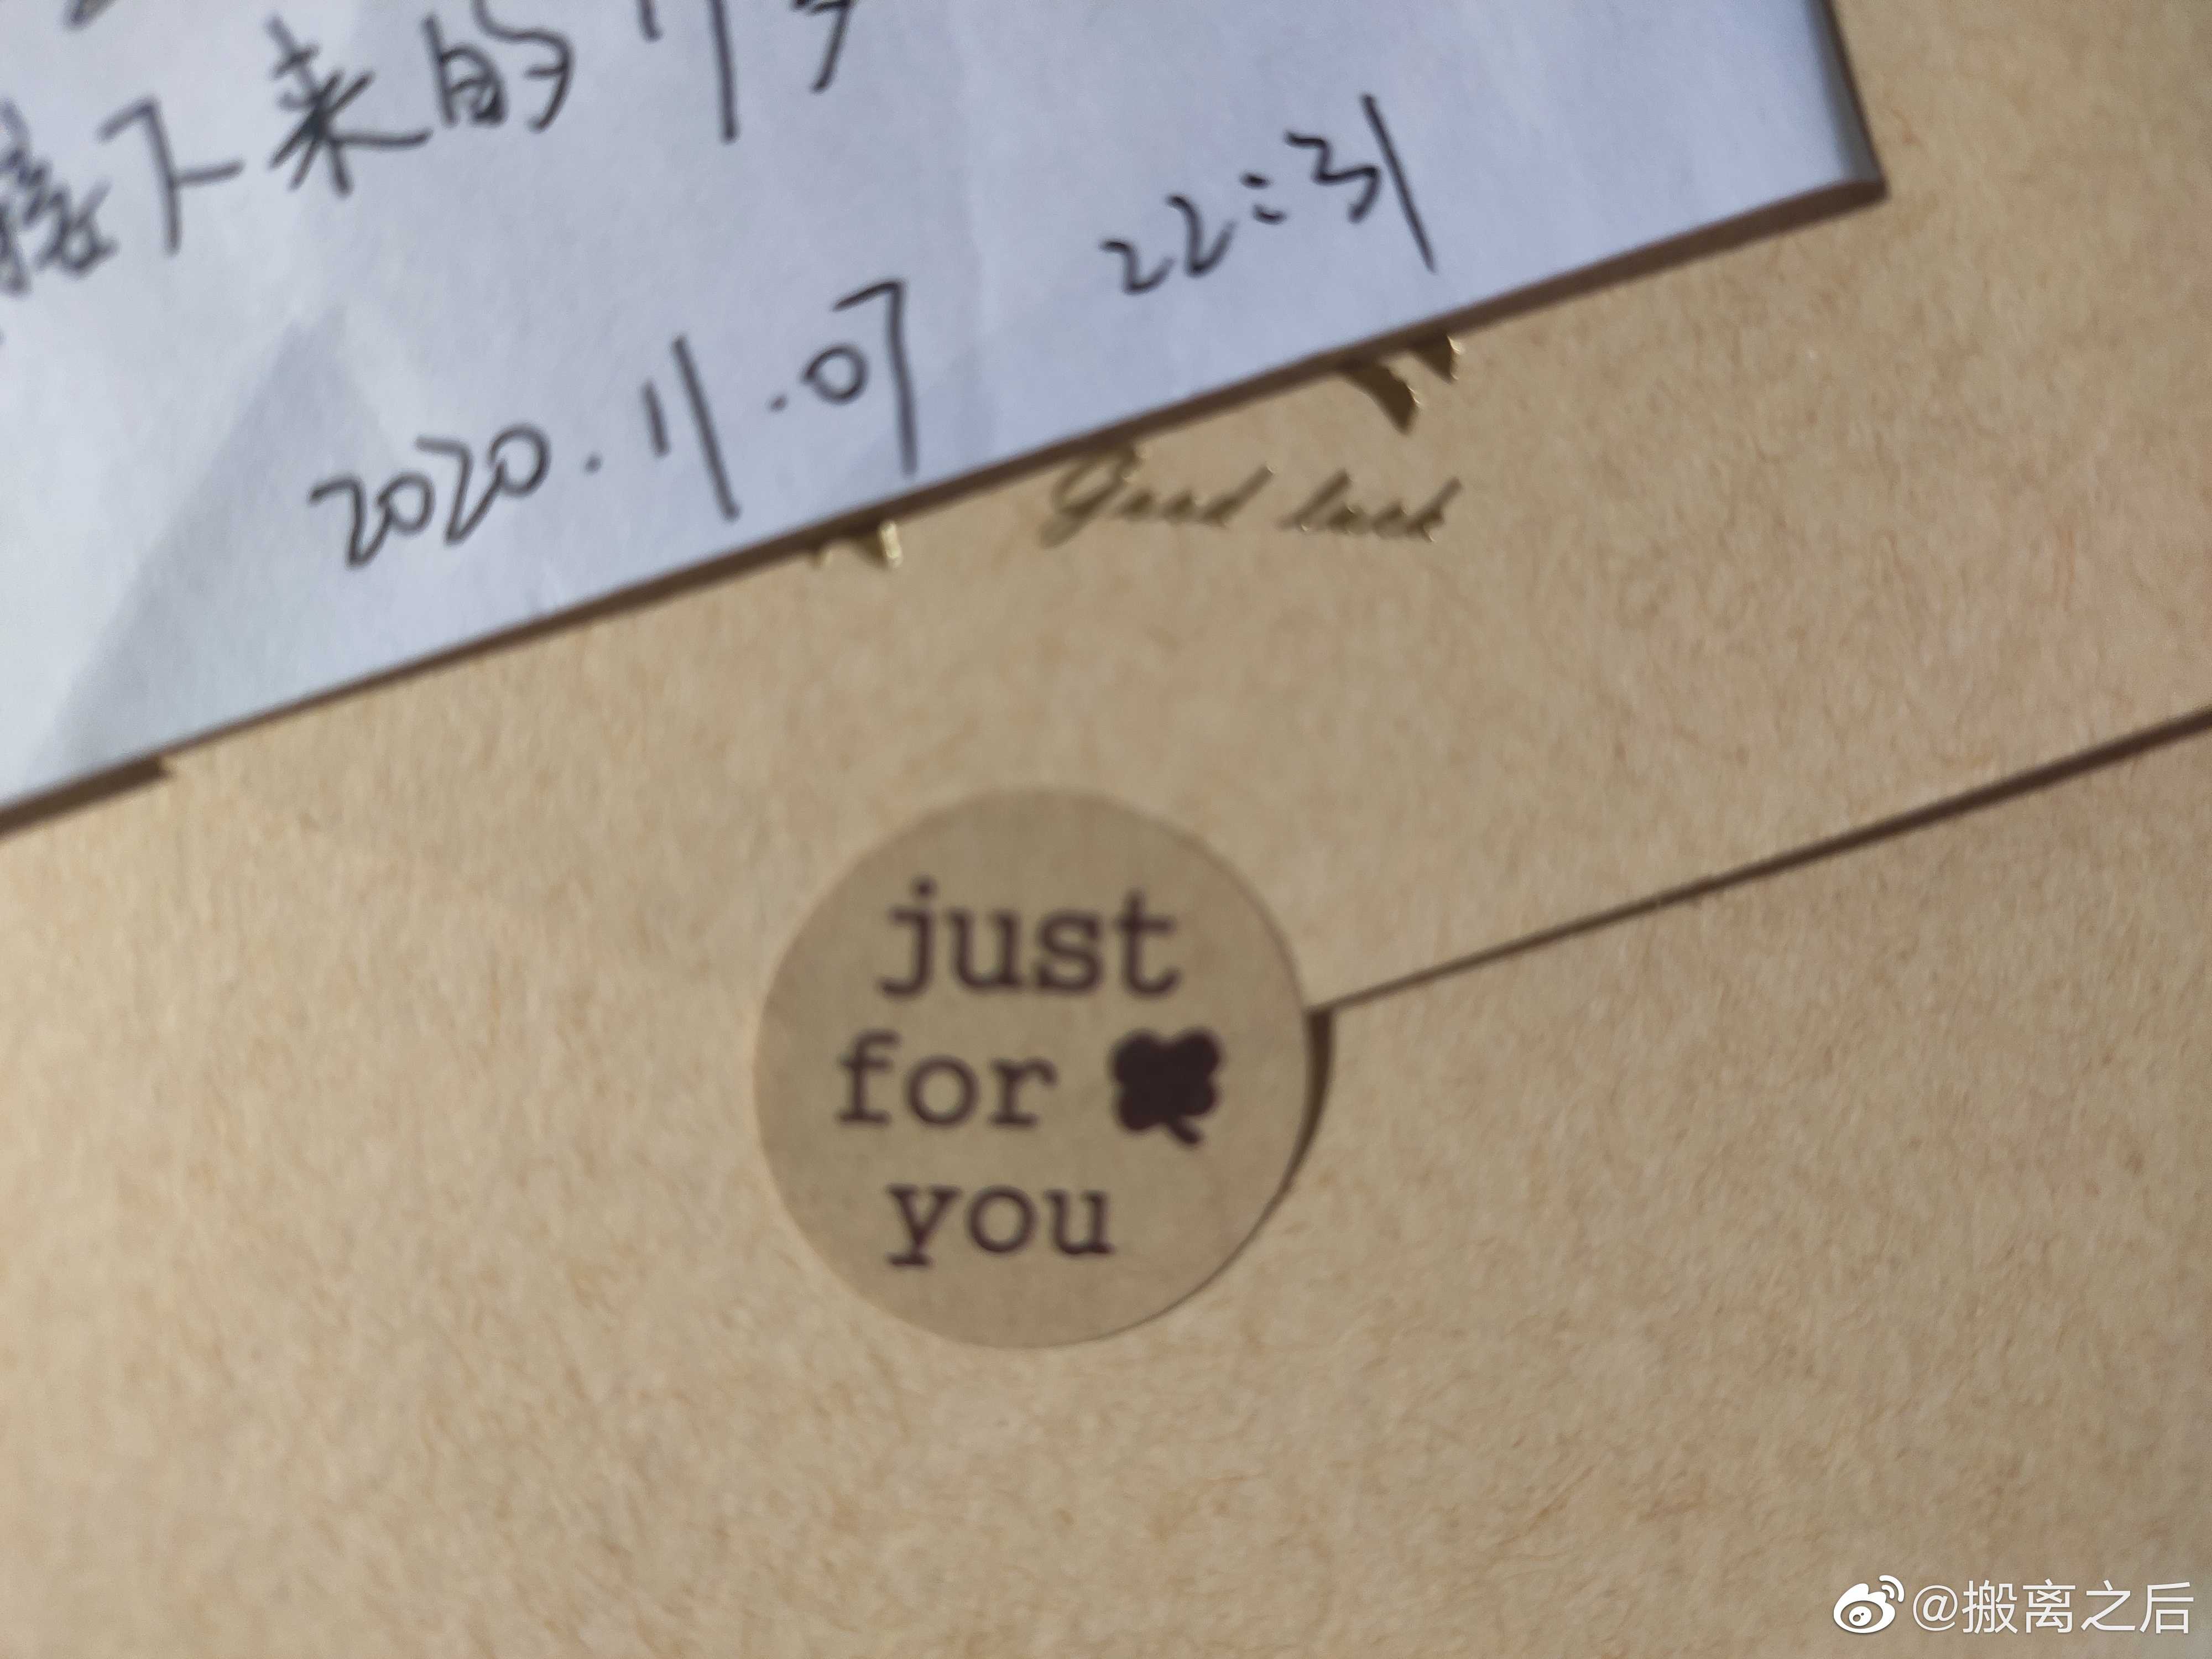 接下来的
2020.11.07 22:31
Good luck
just
for
you
@搬离之后